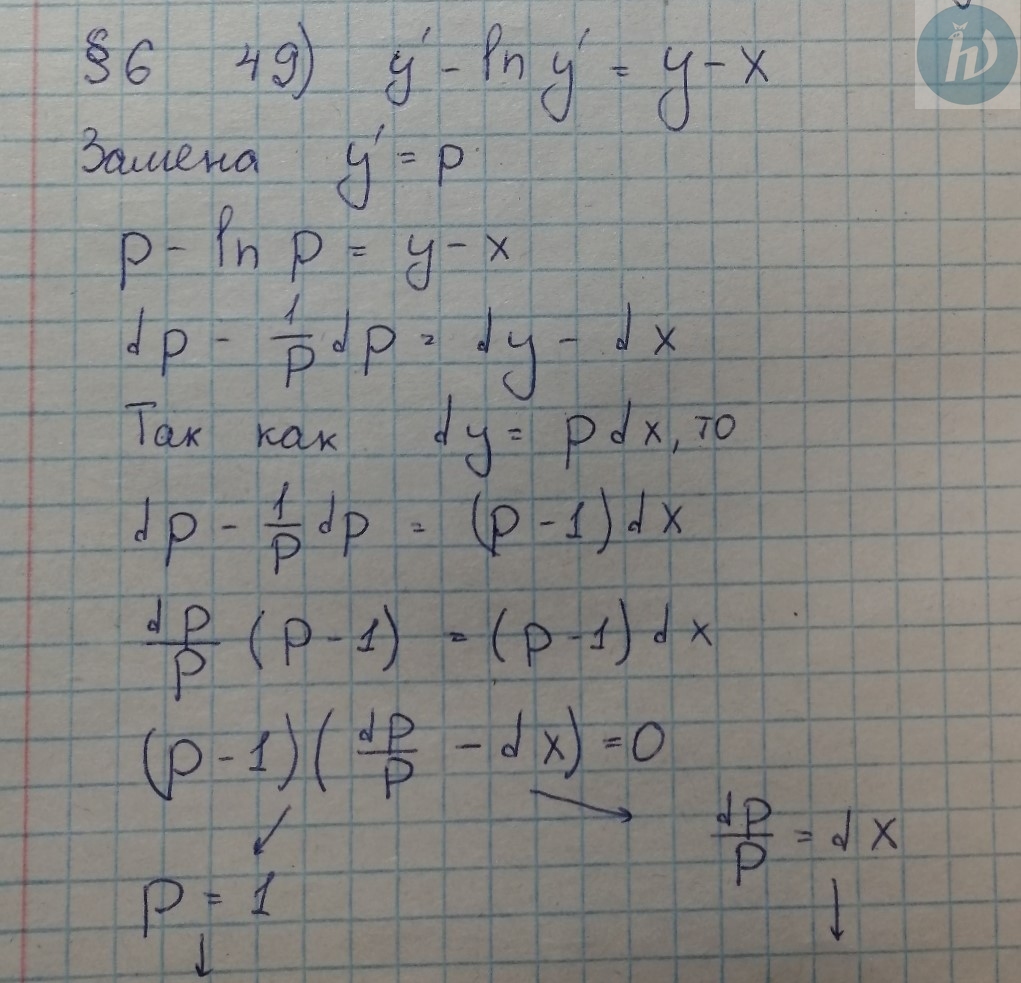 §6 49) y' - ln y' = y - x
Замена y' = p
p - ln p = y - x
dp - 1/p dp = dy - dx
Так как dy = p dx, то
dp - 1/p dp = (p - 1) dx
dp/p (p - 1) = (p - 1) dx
(p - 1)(dp/p - dx) = 0
↙ ↘ dp/p = dx
p = 1 ↓
↓